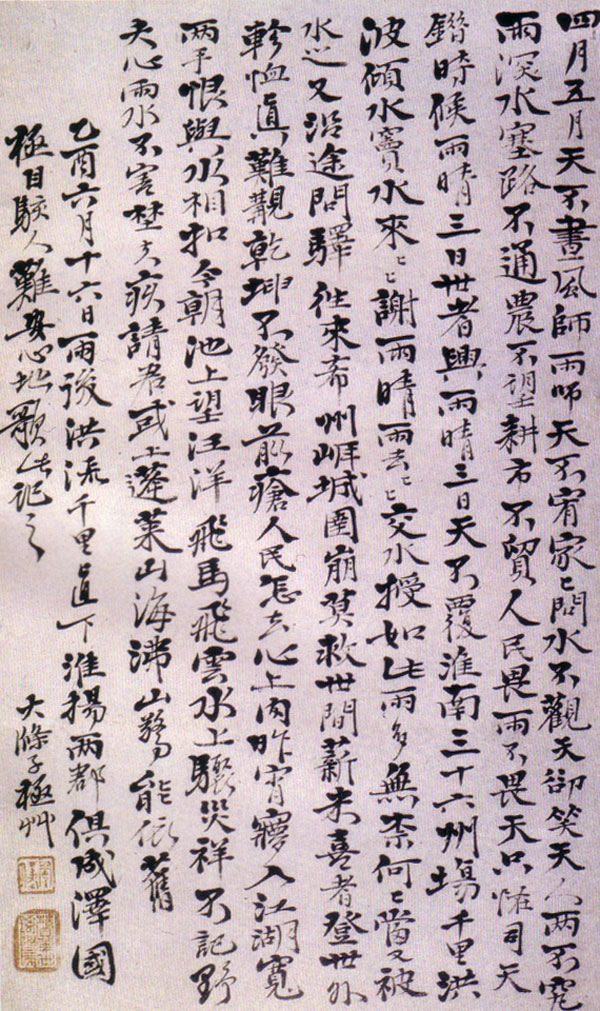 四月五月天不晝風師雨師天不宥家々問水不觀天卻笑天人兩不究
雨深水塞路不通農不望耕市不貿人民畏雨不畏天只怪司天
時候雨晴三日世者興雨晴三日天不覆淮南三十六州場千里洪
波傾水竇水來々謝雨晴雨去々交水授如此雨多無柰何々當又被
水又沿途問驛往來奇州崕城圍崩莫救世間薪米喜者登世外
軫恤真難覯乾坤不發眼前瘡人民怎去心上肉昨宵寱入江湖寬
兩手恨與水相扣今朝池上望汪洋飛馬飛雲水上驟災祥不記野
夫心雨水不害埜夫疚請君或上蓬萊山海沸山驚能依舊
乙酉六月十六日雨後洪流千里直下淮揚兩郡俱成澤國
極目駭人難安心地歌此記之
大滌子極艸